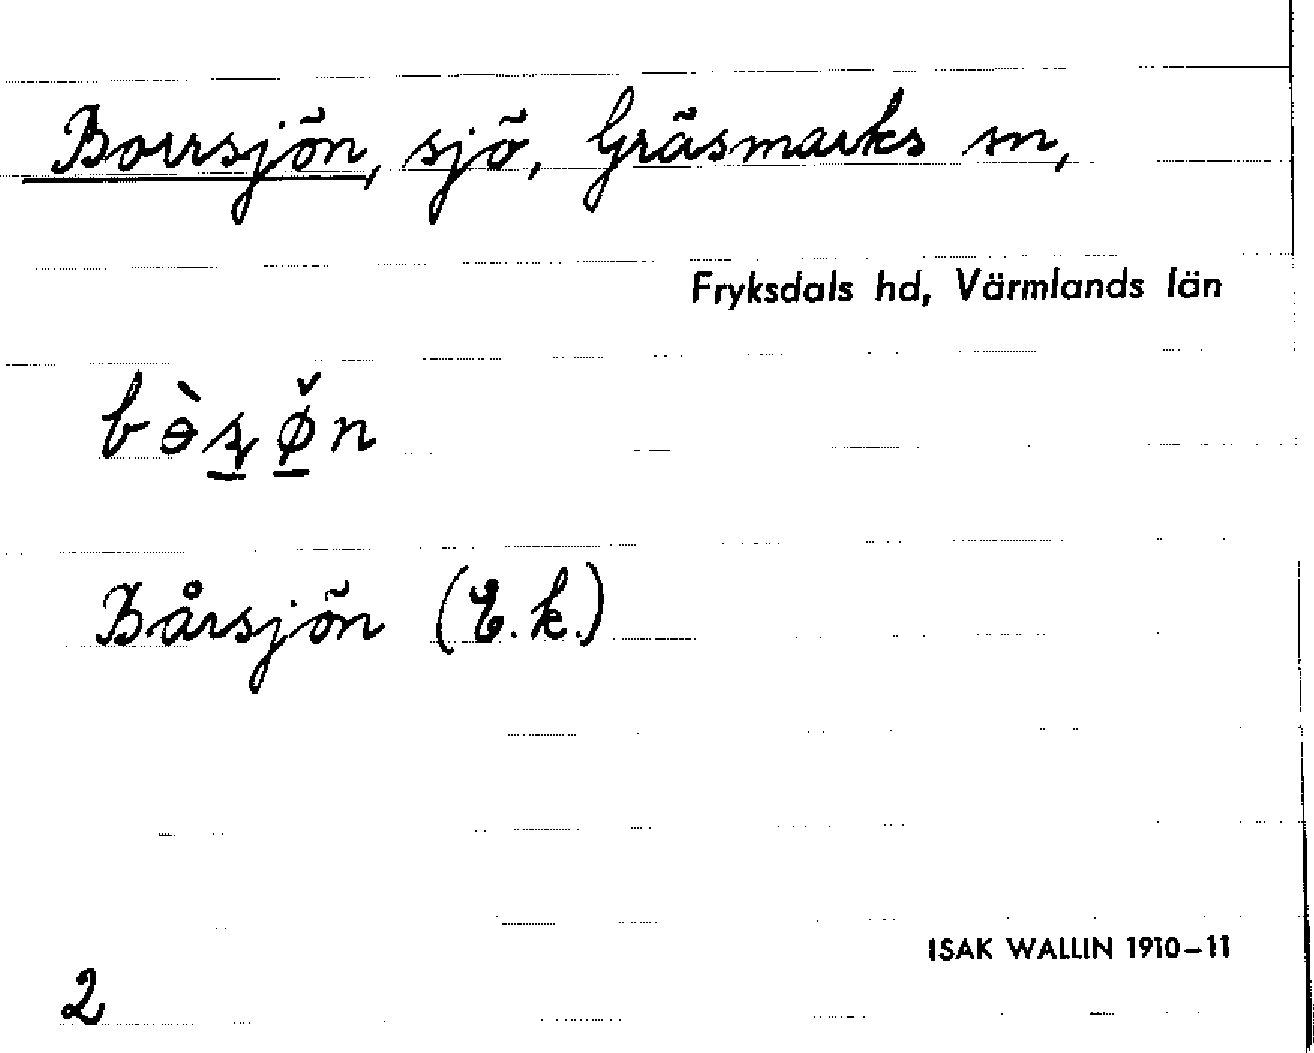 Borrsjön, sjö, Gräsmarks sn,
Fryksdals hd, Värmlands län
Bårsjön (E.k.)
ISAK WALLIN 1910-11
2